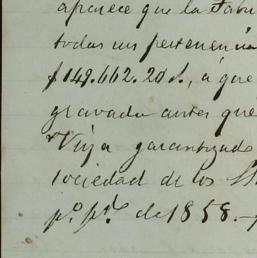 aparece que la Fabri
todas sus pertenencia
$149.662.20 s., á que
gravada antes que
Vieja garantizado
sociedad de los SS
pº. pdº. de 1858.